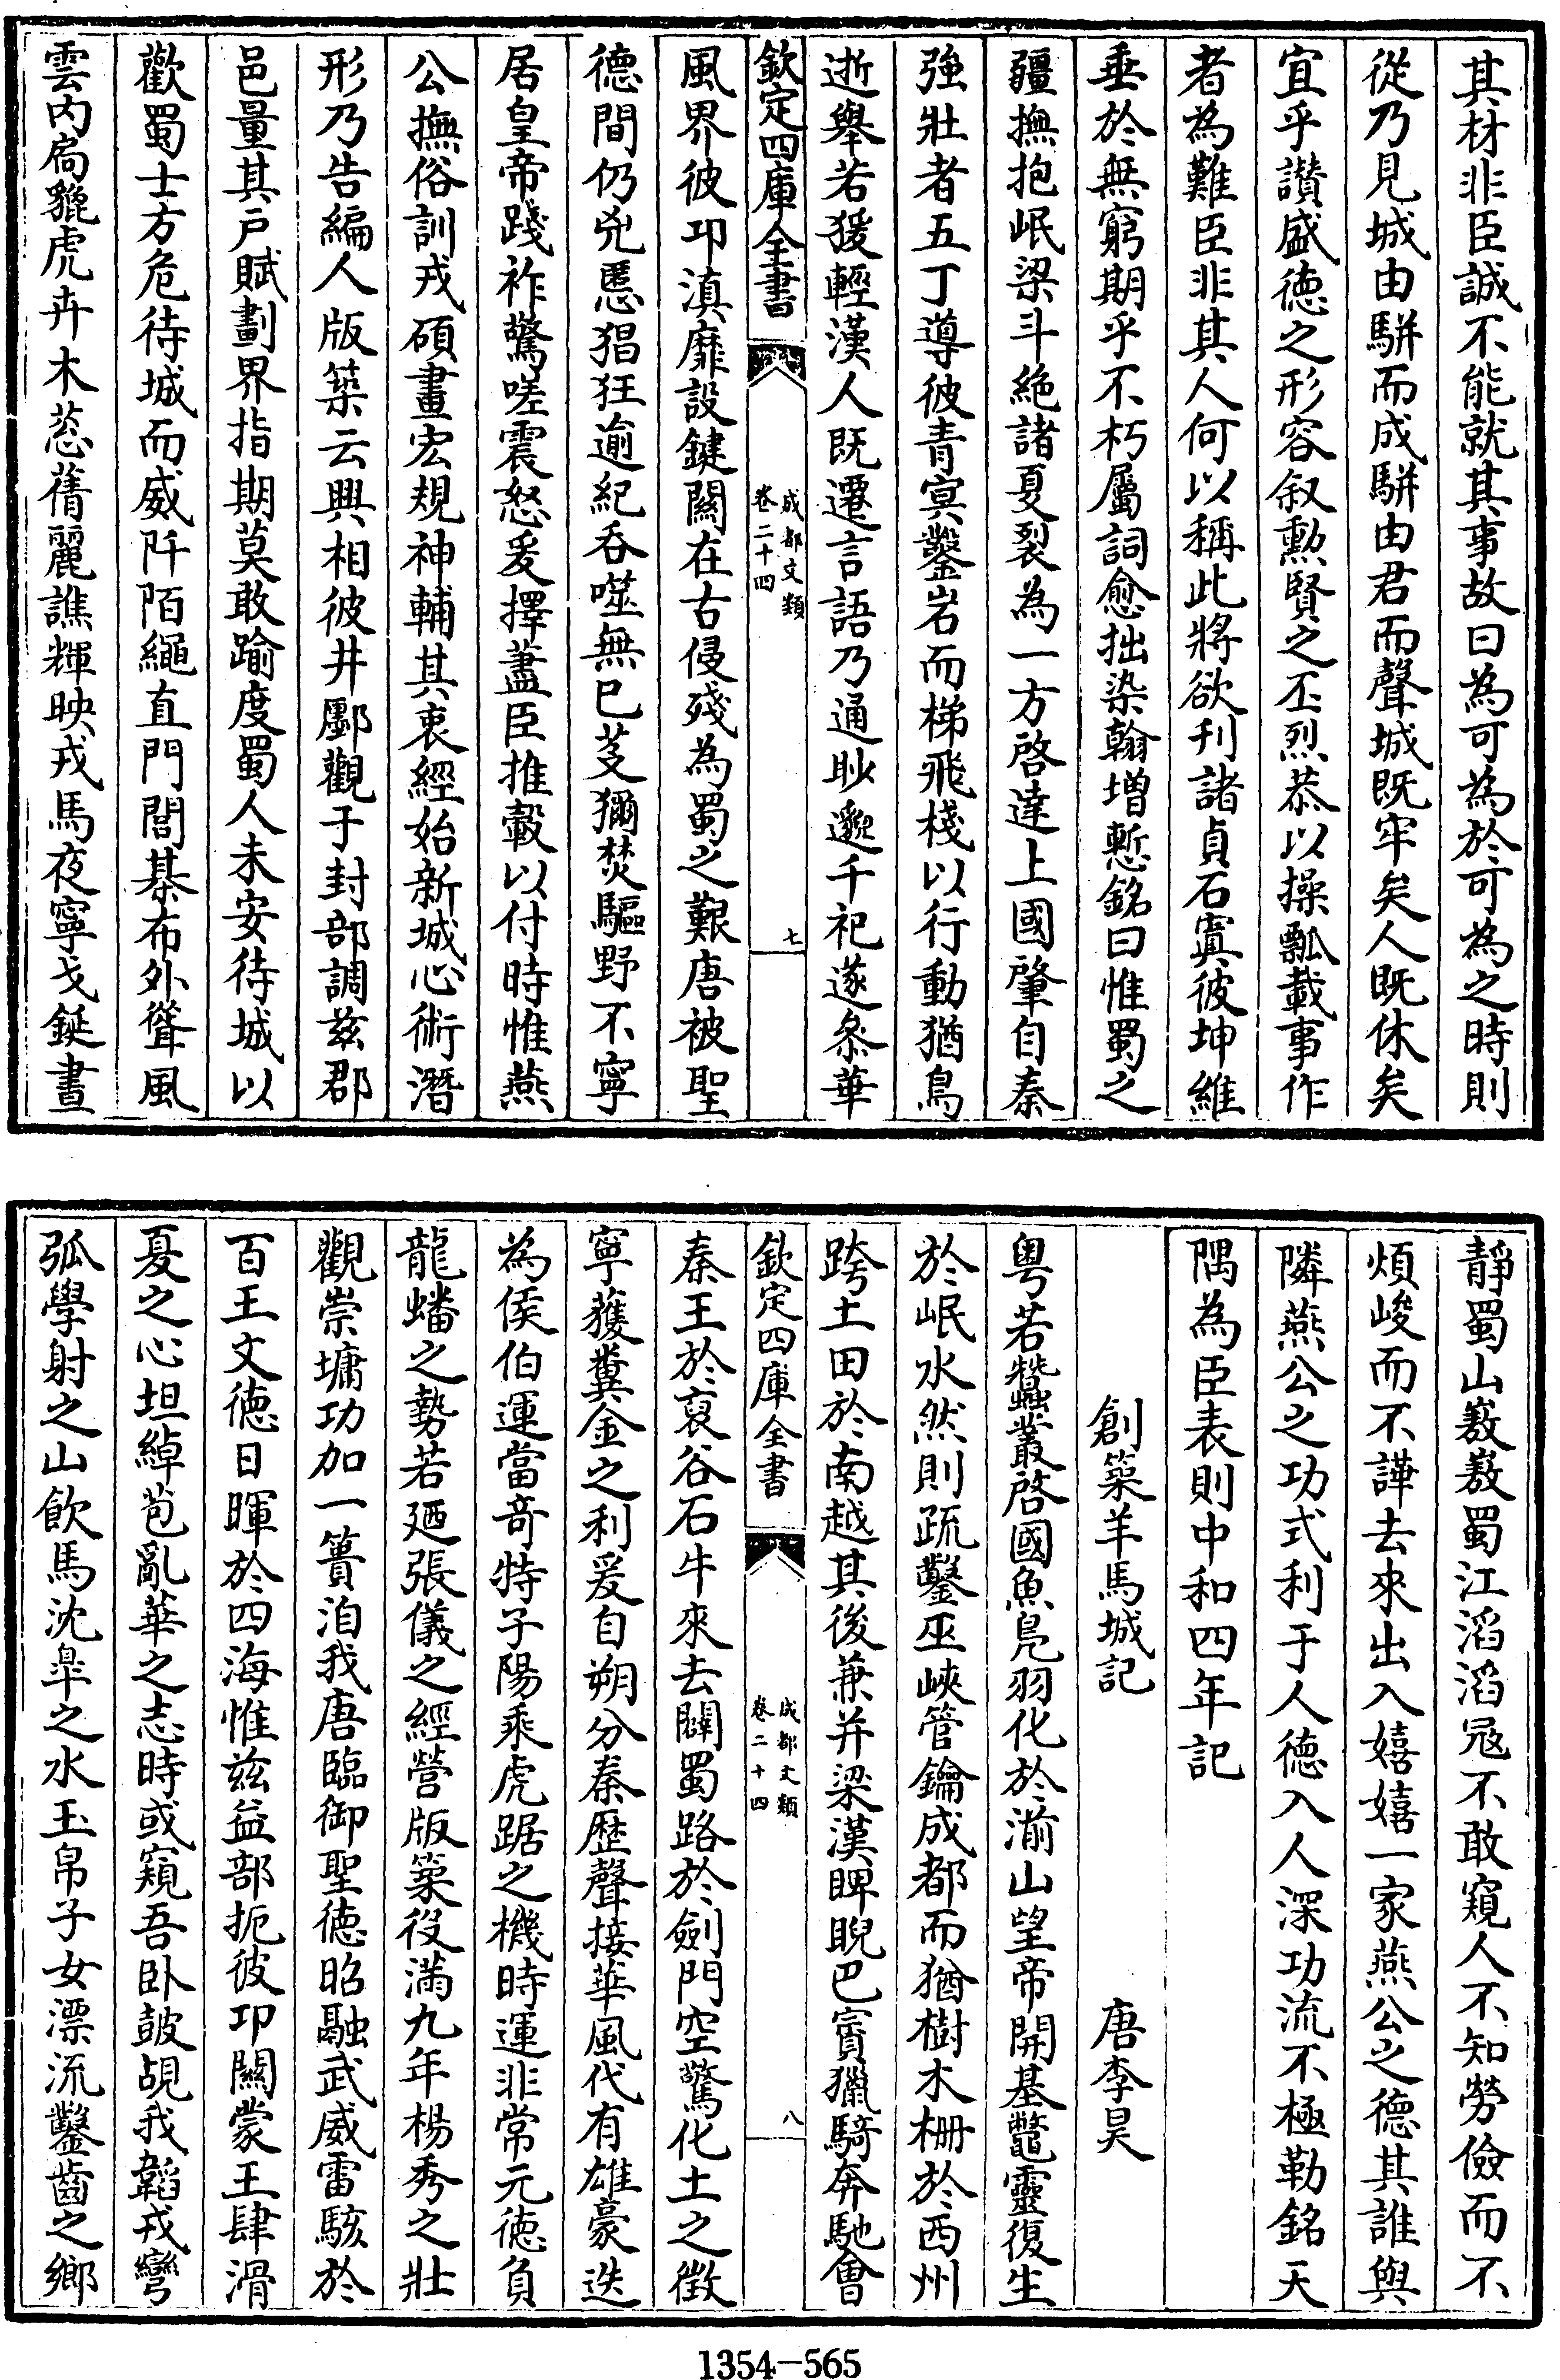 其材非臣誠不能就其事故曰為可為於可為之時則
從乃見城由駢而成駢由君而聲城既牢矣人既休矣
宜乎讚盛徳之形容叙勲賢之丕烈恭以操瓢載事作
者為難臣非其人何以稱此將欲刋諸貞石寘彼坤維
垂於無窮期乎不朽屬詞愈拙染翰增慙銘曰惟蜀之
疆撫抱岷梁斗絶諸夏裂為一方啓達上國肇自秦
強壯者五丁導彼青冥鑿岩而梯飛棧以行動猶鳥
逝舉若猨輕漢人既遷言語乃通眇邈千祀遂叅華
欽定四庫全書
成都文類
卷二十四
七
風界彼卭滇靡設鍵闗在古侵殘為蜀之艱唐被聖
德間仍兇慝猖狂逾紀吞噬無已芟獮焚驅野不寧
居皇帝踐祚驚嗟震怒爰擇藎臣推轂以付時惟燕
公撫俗訓戎碩畫宏規神輔其衷經始新城心術潛
形乃告編人版築云興相彼井鄽觀于封部調兹郡
邑量其戸賦劃界指期莫敢踰度蜀人未安待城以
歡蜀士方危待城而威阡陌繩直門閭棊布外聳風
雲内扃貔虎卉木葱蒨麗譙輝映戎馬夜寧戈鋋晝
靜蜀山嶷嶷蜀江滔滔冦不敢窺人不知勞儉而不
煩峻而不譁去來出入嬉嬉一家燕公之德其誰與
隣燕公之功式利于人徳入人深功流不極勒銘天
隅為臣表則中和四年記
創築羊馬城記　唐李昊
粤若蠶叢啓國魚鳬羽化於湔山望帝開基鼈靈復生
於岷水然則疏鑿巫峽管鑰成都而猶樹木柵於西州
跨土田於南越其後兼并梁漢睥睨巴賨獵騎奔馳會
欽定四庫全書
成都文類
卷二十四
八
秦王於裒谷石牛來去闢蜀路於劍門空驚化土之徵
寧獲糞金之利爰自朔分秦歴聲接華風代有雄豪迭
為侯伯運當竒特子陽乘虎踞之機時運非常元徳負
龍蟠之勢若廼張儀之經營版築役滿九年楊秀之壯
觀崇墉功加一簣洎我唐臨御聖徳昭融武威雷駭於
百王文徳日暉於四海惟兹益部扼彼卭闗蒙王肆滑
夏之心坦綽苞亂華之志時或窺吾卧鼓覘我韜戎彎
弧學射之山飲馬沈犀之水玉帛子女漂流鑿齒之鄉
1354-565